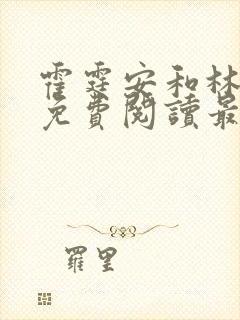 霍霆安和林
免費閱讀最
羅里